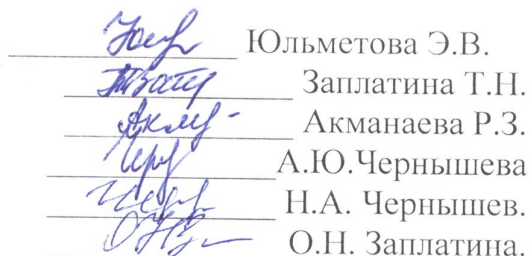 Юльметова Э.В.
Заплатина Т.Н.
Акманаева Р.З.
А.Ю.Чернышева
Н.А. Чернышев.
О.Н. Заплатина.